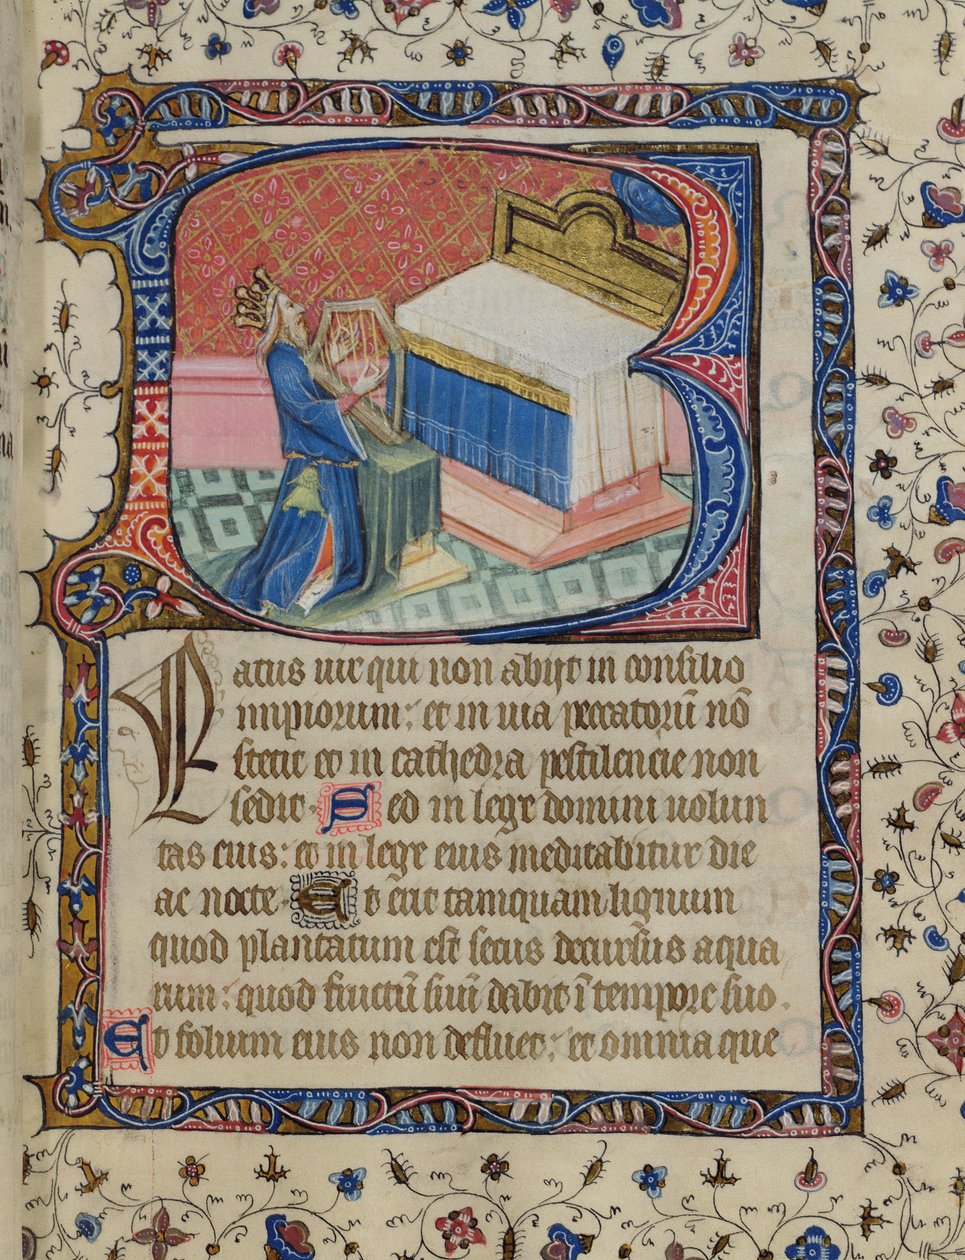 BEatus uir qui non abijt in consilio
impiorum: et in uia peccatorū nō
stetit et in cathedra pestilencie non
sedit: Sed in lege domini uolun
tas eius: et in lege eius meditabitur die
ac nocte. Et erit tamquam lignum
quod plantatum est secus decursus aqua
rum: quod fructū suū dabit ī tempore suo.
Et folium eius non defluet: et omnia que